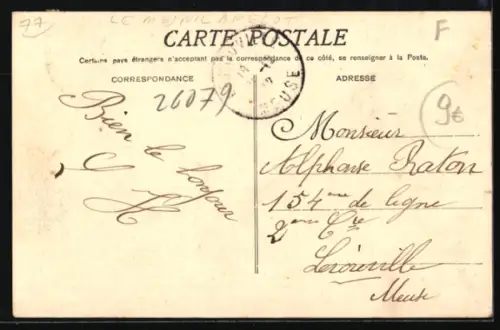 77
LE MESNIL AMELOT
F
CARTE POSTALE
Certains pays étrangers n'acceptant pas la correspondance de ce côté, se renseigner à la Poste.
CORRESPONDANCE
ADRESSE
MEUSE
26079
9€
Bien le bonjour
Monsieur
Alphonse Raton
154ème de ligne
2ème Cie
Lérouville
Meuse